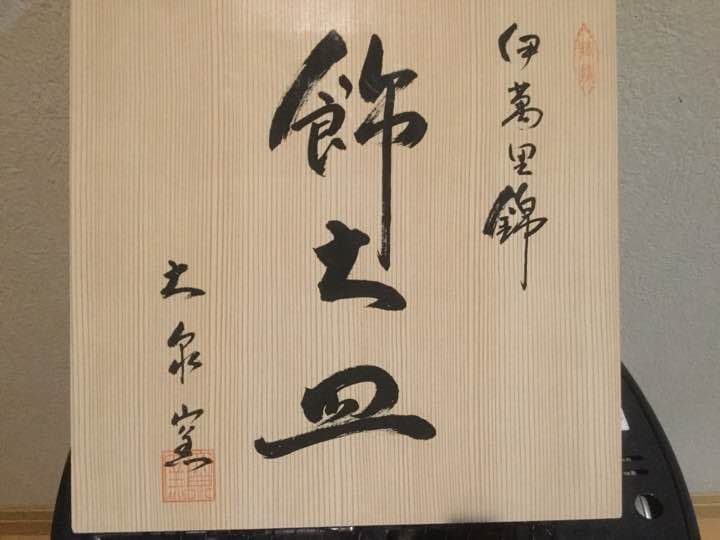 伊萬里錦
飾大皿
大泉窯